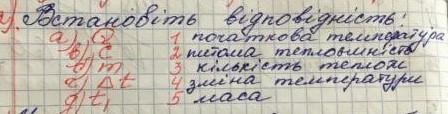 2). Встановіть відповідність:
а) Q 1 початкова температура
б) c 2 питома теплоємність
в) m 3 кількість теплоти
г) Δt 4 зміна температури
д) t₁ 5 маса